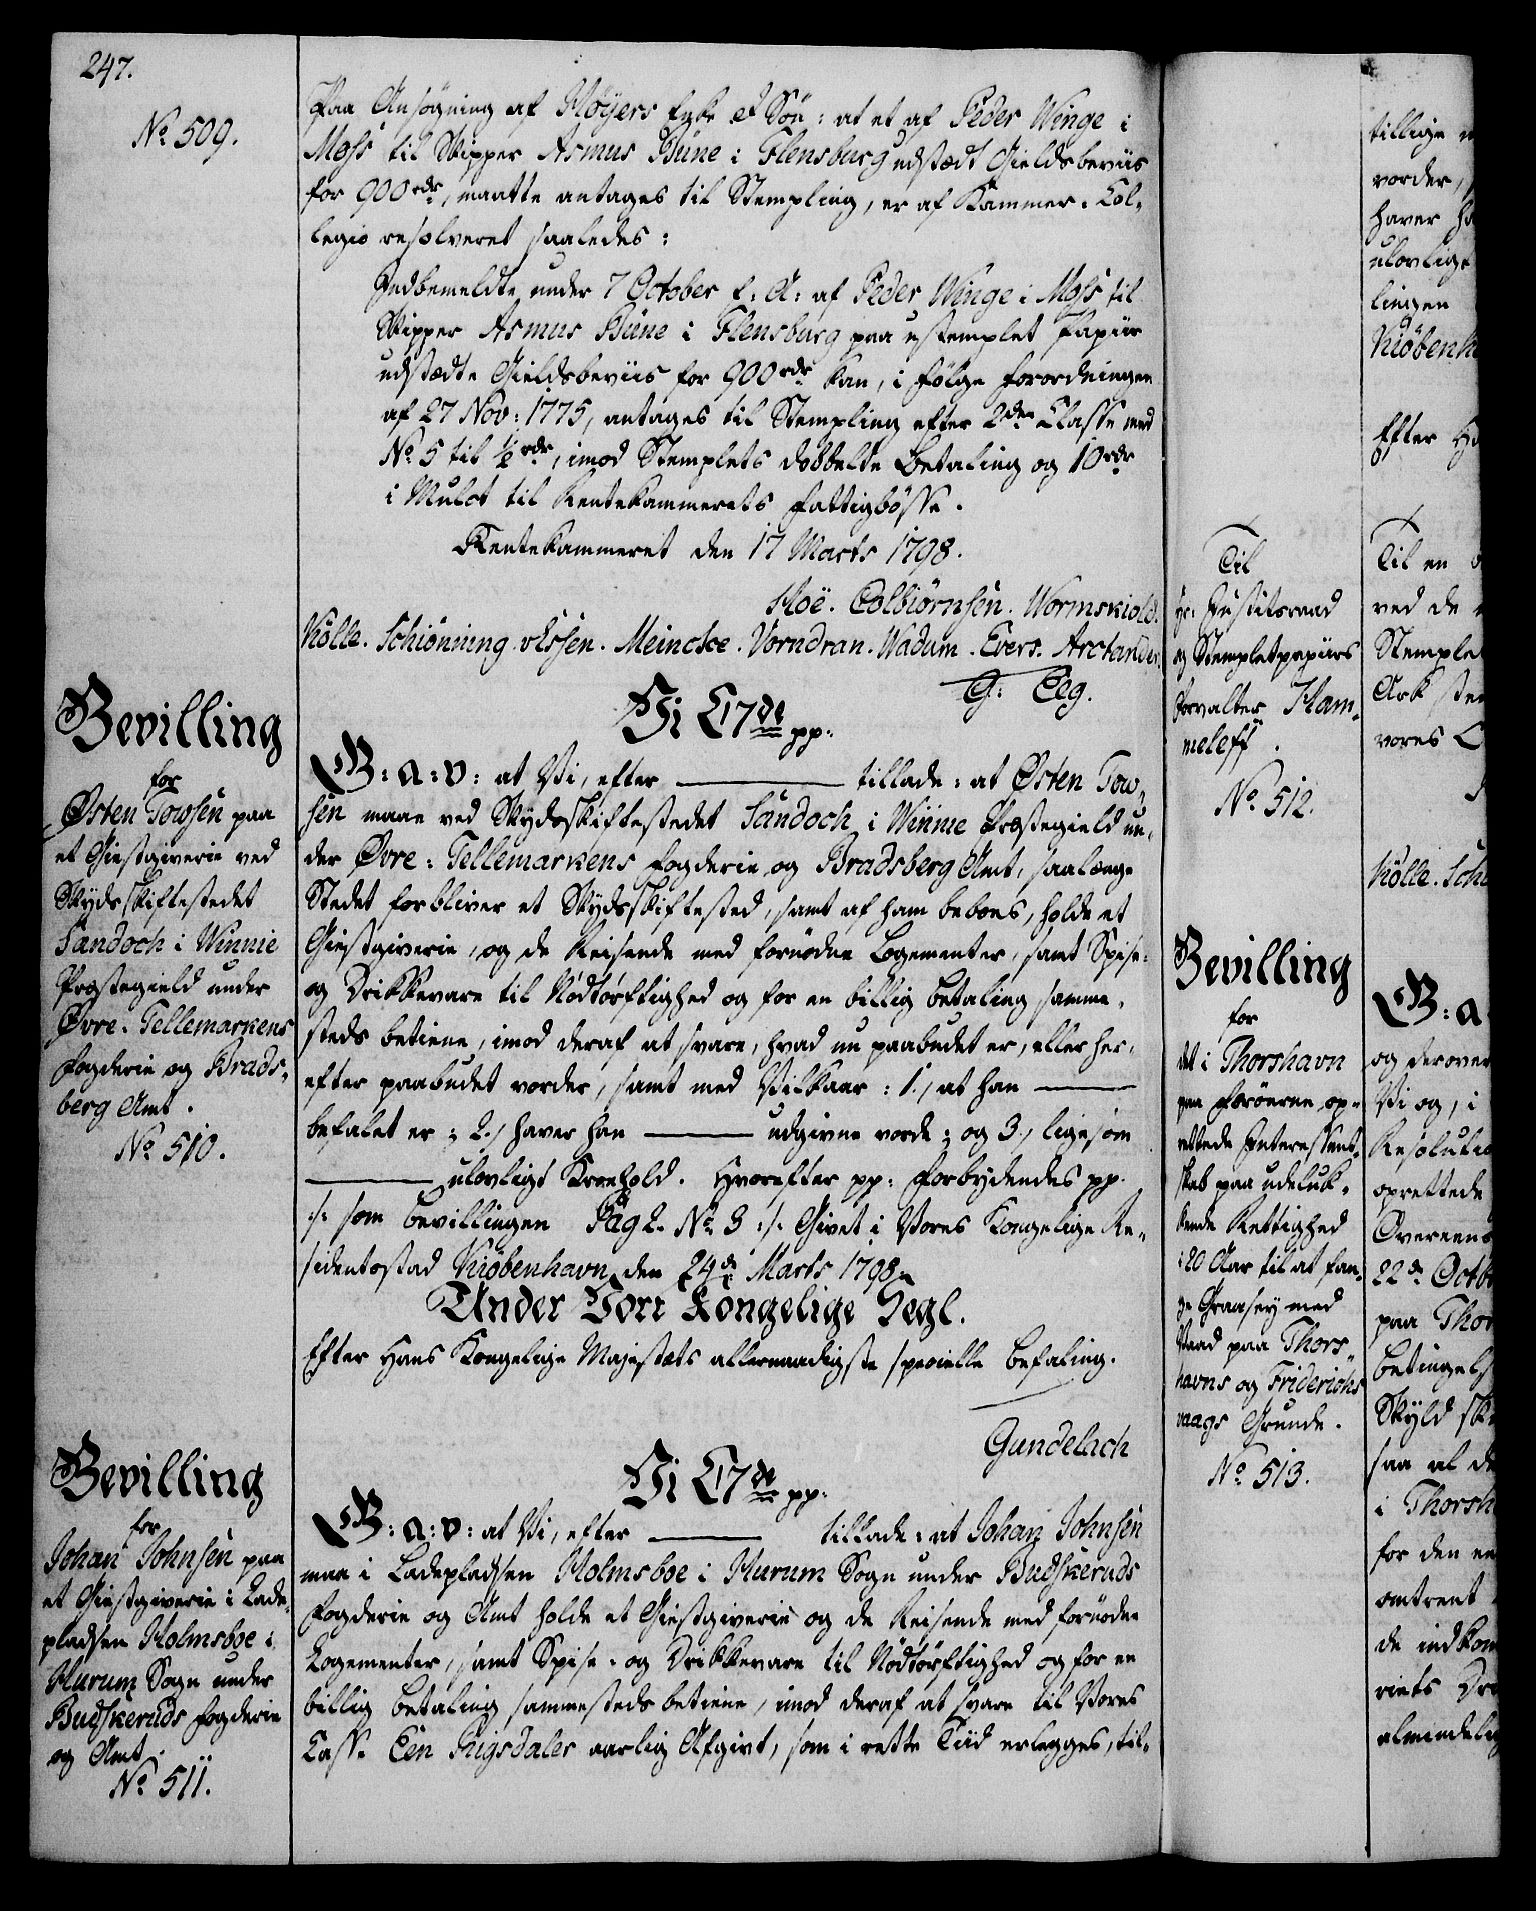 247.
No 509.
Paa Ansøgning af Høyers Enke et Søn: at et af Peder Winge i
Moss til Skipper Asmus Büne i Flensburg udstædt Gieldsbeviis
for 900 rdr, maatte antages til Stempling, er af Kammer-Col-
legio resolveret saaledes:
Indbemeldte under 7 October f: A: af Peder Winge i Moss til
Skipper Asmus Büne i Flensburg paa ustemplet Papiir
udstædte Gieldsbeviis for 900 rdr kan, i følge Forordningen
af 27 Nov: 1775, antages til Stempling efter 2den Classe med
No 5 til ½ rdr, imod Stemplets dobbelte Betaling og 10 rdr
i Mulct til Rentekammerets Fattigbøsse.
Rentekammeret den 17 Marts 1798.
Hoë. Colbiørnsen. Wormskiold.
Kölle. Schiønning. v Essen. Meincke. Vorndran. Wadum. Evers. Arctander.
G: Ceg.
Bevilling
for
Østen Towsen paa
et Giestgiverie ved
Skydsskiftestedet
Sandoch i Winnie
Præstegield under
Øvre-Tellemarkens
Fogderie og Brads-
berg Amt.
No 510.
Vi C 7de pp:
G: a: v: at Vi, efter ——— tillade: at Østen Tow-
sen maae ved Skydsskiftestedet Sandoch i Winnie Præstegield un-
der Øvre-Tellemarkens Fogderie og Bradsberg Amt, saalænge
Stedet forbliver et Skydsskiftested, samt af ham beboes, holde et
Giestgiverie, og de Reisende med fornødne Logementer, samt Spise-
og Drikkevare til Nødtørftighed og for en billig Betaling samme-
steds betiene, imod deraf at svare, hvad nu paabudet er, eller her-
efter paabudet vorder, samt med Vilkaar: 1., at han ———
befalet er; 2., haver han ——— udgivne vorde; og 3., ligesom
——— ulovligt Kroehold. Hvorefter pp: Forbydendes pp.
:/: som Bevillingen Pag 2. No 3 :/: Givet i Vores Kongelige Re-
sidentzstad Kiøbenhavn den 24de Marts 1798.
Under Vort Kongelige Segl.
Efter Hans Kongelige Majestæts allernaadigste specielle Befaling.
Gundelach
Bevilling
for
Johan Johnsen paa
et Giestgiverie i Lade-
pladsen Holmsboe i
Hurum Sogn under
Budskeruds Fogderie
og Amt.
No 511.
Vi C 7de pp:
G: a: v: at Vi, efter ——— tillade: at Johan Johnsen
maa i Ladepladsen Holmsboe i Hurum Sogn under Budskeruds
Fogderie og Amt holde et Giestgiverie og de Reisende med fornødne
Logementer, samt Spise- og Drikkevare til Nødtørftighed og for en
billig Betaling sammesteds betiene, imod deraf at svare til Vores
Casse Een Rigsdaler aarlig Afgivt, som i rette Tiid erlegges, til-
Til
Hr. Justitsraad
og Stempletpapiirs
forvalter Ham-
meleff.
No 512.
Bevilling
for
det i Thorshavn
paa Færøerne op-
rettede Interessent-
skab paa udeluk-
kende Rettighed
i 20 Aar til at fan-
ge Graasey med
Vaad paa Thors-
havns og Friderichs
vaags Grunde.
No 513.
tillige
vorder,
haver
ulovlige
lingen
Kiøbenh
Efter Ha
Til en
ved de
Stemple
Ark
vores
Kölle. Sch
G: a
og derover
Vi og, i
Resolutio
oprettede
Overeens
22de Octb
paa Thor
Betingels
Skyld
saa al de
i Thorsh
for den
omtrent
de indkom
riets
almindelig